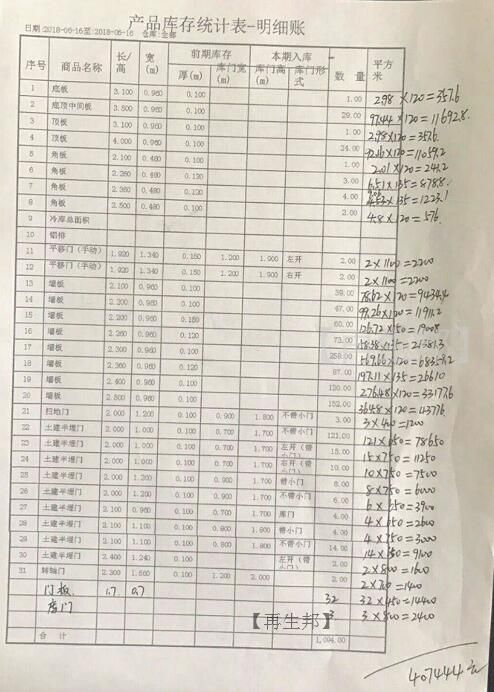 产品库存统计表-明细账
日期:2018-06-16至:2018-06-16 仓库:全部
序号 商品名称 长/高 宽(m) 前期库存 本期入库 数 量 平方米
厚(m) 库门宽(m) 库门高(m) 库门形式
1 底板 3.100 0.960 0.100 1.00 2.98 ×120=357.6
2 底顶中间板 3.500 0.960 0.100 29.00 97.44 ×120=11692.8
3 顶板 3.100 0.960 0.100 1.00 2.98×120=357.6
4 顶板 4.000 0.960 0.100 24.00 92.16×120=11059.2
5 角板 2.100 0.480 0.100 1.00 2.01×120=241.2
6 角板 2.260 0.480 0.120 3.00 6.51×135=878.8
7 角板 2.360 0.480 0.120 4.00 ×135=1223.1
8 角板 2.500 0.480 0.100 2.00 4.8×120=576
9 冷库总面积
10 铝排
11 平移门(手动) 1.920 1.340 0.150 1.200 1.900 左开 2.00 2×1100=2200
12 平移门(手动) 1.920 1.340 0.150 1.200 1.900 右开 2.00 2×1100=2200
13 墙板 2.100 0.960 0.100 39.00 78.62×120=9434.4
14 墙板 2.200 0.960 0.100 47.00 99.26×120=11911.2
15 墙板 2.200 0.960 60.00 126.72×150=19008
16 墙板 2.260 0.960 0.120 73.00 ×135=21381.3
17 墙板 2.300 0.960 0.100 258.00 569.66×120=68359.2
18 墙板 2.360 0.960 0.120 87.00 197.11×135=26610
19 墙板 2.400 0.960 0.100 120.00 276.48×120=33177.6
20 墙板 2.500 0.960 0.100 152.00 364.8×120=43776
21 扫地门 2.000 1.200 0.100 0.900 1.800 不带小门 3.00 3×400=1200
22 土建半埋门 2.000 1.000 0.100 0.700 1.700 不带小门 121.00 121×650=78650
23 土建半埋门 2.000 1.000 0.100 0.700 1.700 左开(带小门) 15.00 15×750=11250
24 土建半埋门 2.000 1.000 0.100 0.700 1.700 右开(带小门) 10.00 10×750=7500
25 土建半埋门 2.000 1.200 0.100 0.900 1.700 带小门 8.00 8×750=6000
26 土建半埋门 2.000 1.200 0.100 0.900 1.700 不带小门 6.00 6×650=3900
27 土建半埋门 2.100 1.000 0.100 0.700 1.700 库门 4.00 4×650=2600
28 土建半埋门 2.100 1.100 0.100 0.800 1.800 带小门 4.00 4×750=3000
29 土建半埋门 2.100 1.100 0.100 0.800 1.800 不带小门 14.00 14×650=9100
30 土建半埋门 2.400 1.240 0.100 左开(带小门) 2.00 2×800=1600
31 转轴门 2.300 1.560 0.100 1.200 2.000 2.00 2×700=1400
门板 1.7 0.7 32 32×450=14400
库门 3 3×800=2400
【再生邦】
合 计 1,094.00
407444元